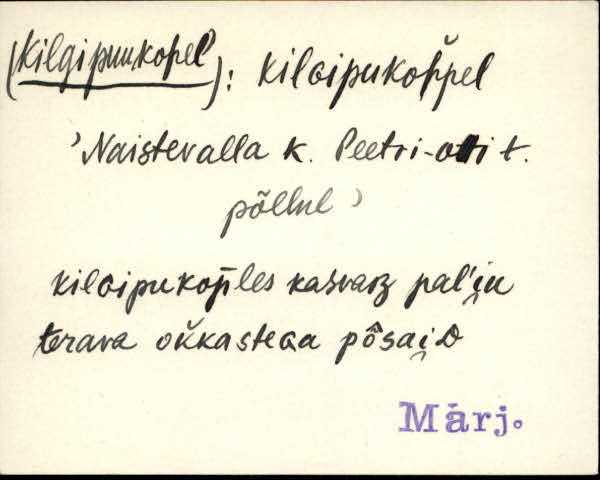 (Kilgipuukopel): kilɢipukop̆pel
'Naistevalla k. Peetri-otti t.
põllul'
kilɢipukop̆ples kasvaᴢ pal'i̯u
terava ok̆kasteɢa põ̭sai̯ᴅ
Märj.